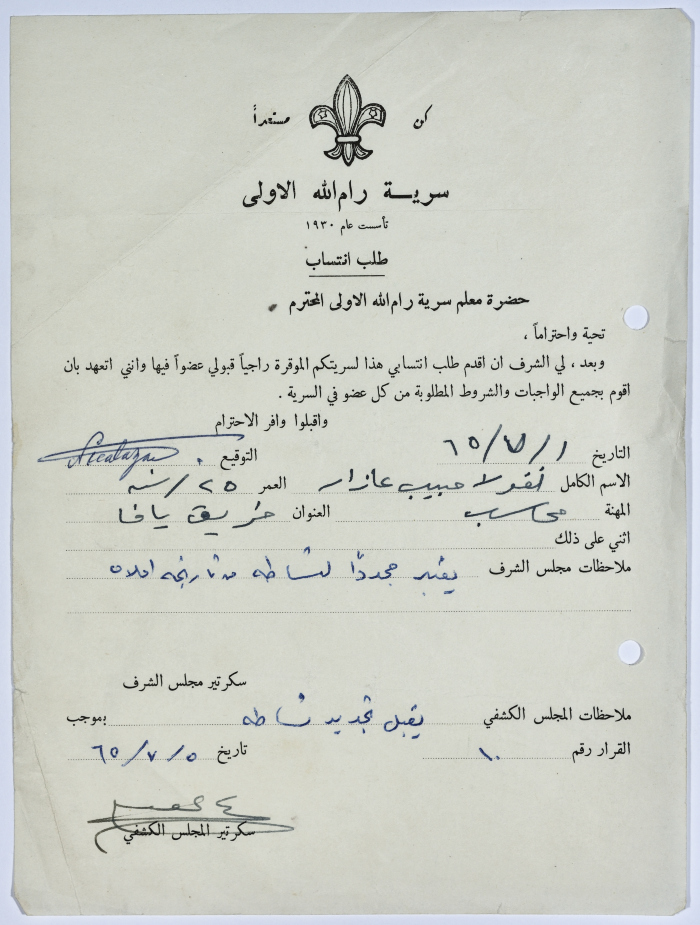 كن مستعداً
سريــة رام‌الله الاولى
تأسست عام ١٩٣٠
طلب انتساب
حضرة معلم سرية رام‌الله الاولى المحترم
تحية واحتراماً ،
وبعد ، لي الشرف ان اقدم طلب انتسابي هذا لسريتكم الموقرة راجياً قبولي عضواً فيها وانني اتعهد بان
اقوم بجميع الواجبات والشروط المطلوبة من كل عضو في السرية .
واقبلوا وافر الاحترام
التاريخ ١/٧/٦٥ التوقيع
الاسم الكامل نقولا حبيب عازار العمر ٢٥/سنه
المهنة محاسب العنوان طريق يافا
اثني على ذلك
ملاحظات مجلس الشرف يعتبر مجددًا لنشاطه من تاريخه اعلاه
سكرتير مجلس الشرف
ملاحظات المجلس الكشفي يقبل تجديد نشاطه بموجب
القرار رقم ١٠ تاريخ ٥/٧/٦٥
سكرتير المجلس الكشفي